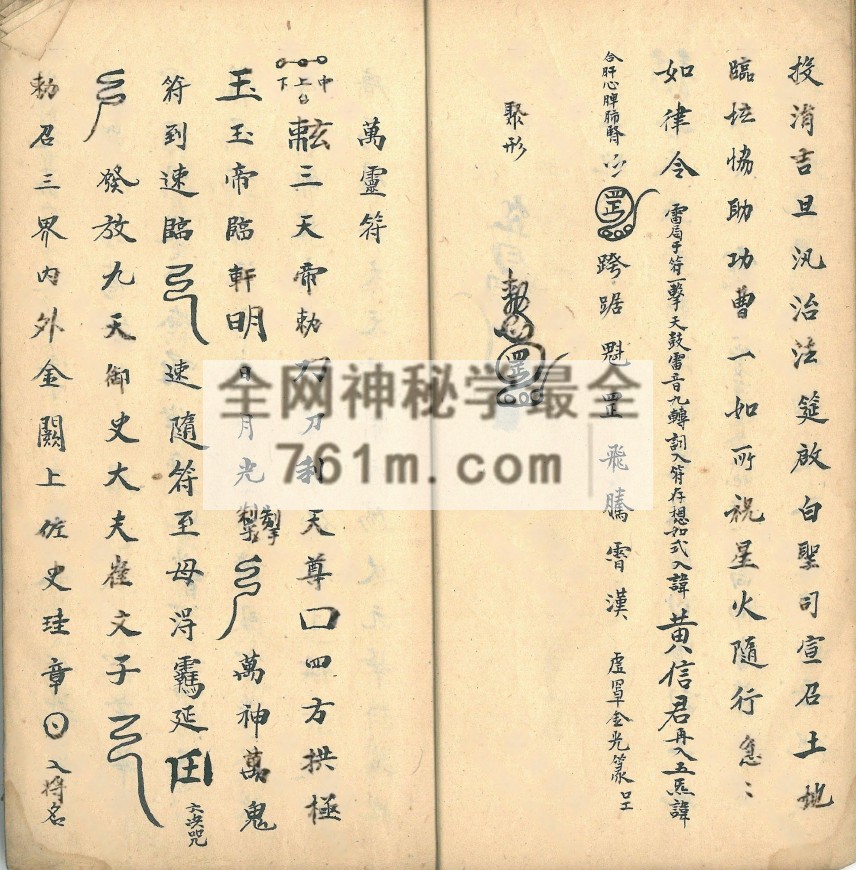 投消吉旦汎治法筵啟白聖司宣召土地
臨坛協助功曹一如所祝星火隨行急〻
如律令 雷局于符一擊天鼓雷音九轉訶入符存想如式入諱 黄信君 再入五炁諱
合肝心脾肺腎 罡 跨踞魁罡飛騰霄漢 虚罩金光篆
聚形
勅 罡
萬靈符
中上台下
三天帝勅 刀刀利天尊口四方拱極
玉玉帝臨軒明日月光掣掣 萬神萬鬼
符到速臨 速隨符至毋得 延 六決咒
發放九天御史大夫崔文子
勅召三界内外金闕上佐史珪章 入将名
全网神秘学最全
761m.com